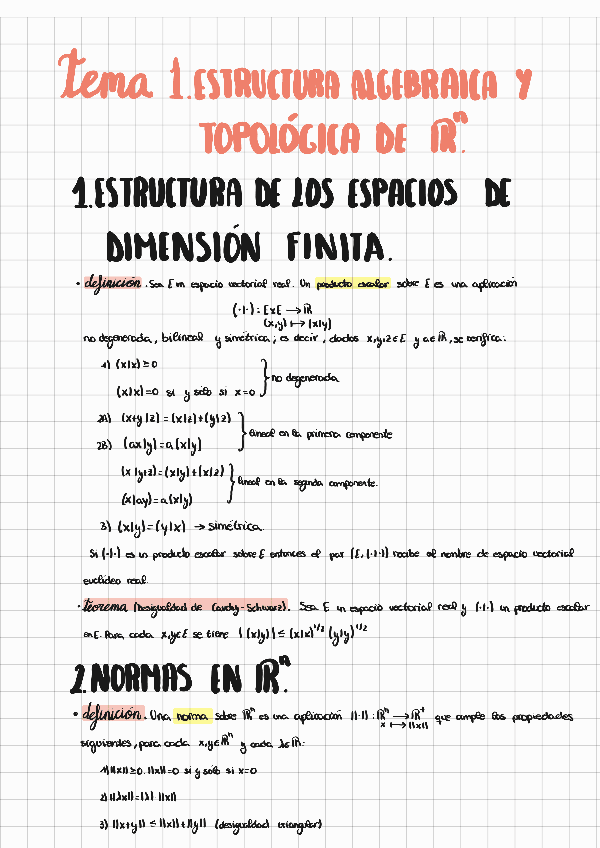 tema 1. ESTRUCTURA ALGEBRAICA Y
TOPOLÓGICA DE ℝⁿ.
1. ESTRUCTURA DE LOS ESPACIOS DE
DIMENSIÓN FINITA.
• definición. Sea E un espacio vectorial real. Un producto escalar sobre E es una aplicación
(·|·) : E×E → ℝ
(x,y) ↦ (x|y)
no degenerada, bilineal y simétrica; es decir, dados x,y,z∈E y a∈ℝ, se verifica:
1) (x|x) ≥ 0
(x|x)=0 si y sólo si x=0 } no degenerada
2A) (x+y|z)=(x|z)+(y|z)
2B) (ax|y)=a(x|y) } lineal en la primera componente
(x|y+z)=(x|y)+(x|z)
(x|ay)=a(x|y) } lineal en la segunda componente.
3) (x|y)=(y|x) → simétrica.
Si (·|·) es un producto escalar sobre E entonces el par (E,(·|·)) recibe el nombre de espacio vectorial
euclídeo real.
• teorema (Desigualdad de Cauchy-Schwarz). Sea E un espacio vectorial real y (·|·) un producto escalar
en E. Para cada x,y∈E se tiene |(x|y)| ≤ (x|x)^1/2 (y|y)^1/2
2. NORMAS EN ℝⁿ.
• definición. Una norma sobre ℝⁿ es una aplicación ||·|| : ℝⁿ → ℝ⁺ que cumple las propiedades
x ↦ ||x||
siguientes, para cada x,y∈ℝⁿ y cada λ∈ℝ:
1) ||x|| ≥ 0. ||x||=0 si y sólo si x=0
2) ||λx||=|λ| ||x||
3) ||x+y|| ≤ ||x||+||y|| (desigualdad triangular)